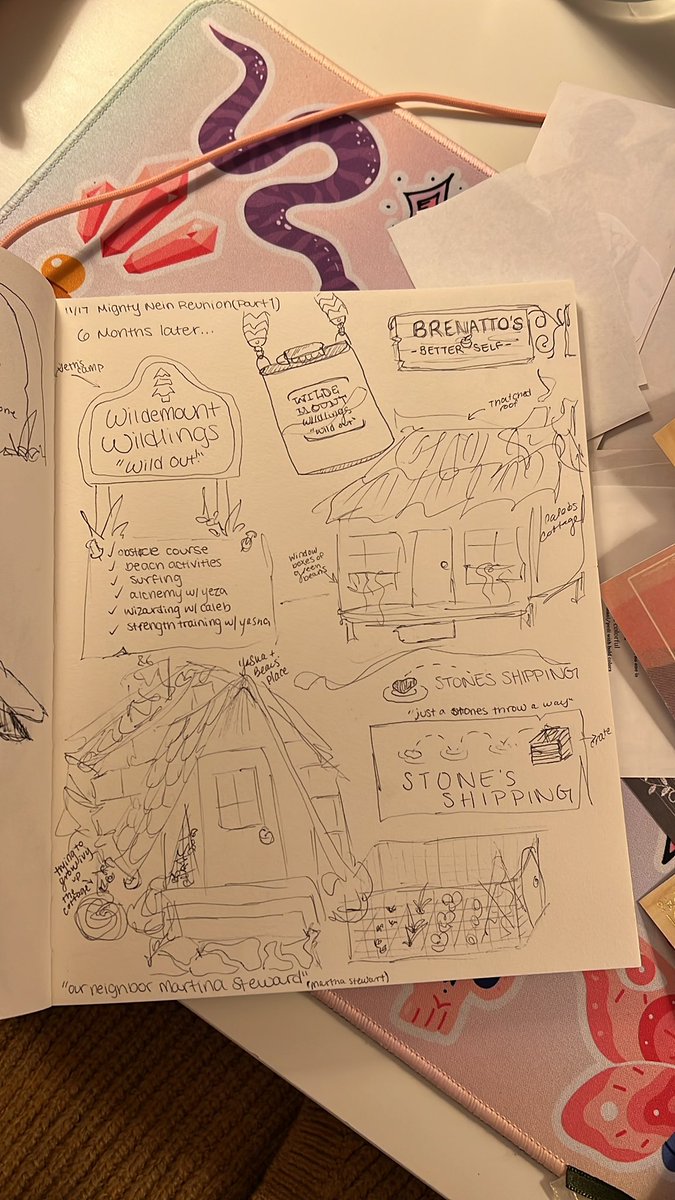 11/17 Mighty Nein Reunion (Part 1)
6 Months later...
Veth's camp
Wildemount
Wildlings
"Wild out!"
WILDE
MOUNT
Wildlings
"wild out"
BRENATTO'S
-BETTER SELF-
Thatched
roof
✓ obstacle course
✓ beach activities
✓ surfing
✓ alchemy w/ yeza
✓ wizarding w/ caleb
✓ strength training w/ yasha
window
boxes of
green
beans
Caleb's
cottage
86
Yasha +
Beau's
Place
STONES SHIPPING
"just a stones throw a way"
STONE'S
SHIPPING
crate
trying to
up
the
cottage
"our neighbor Martina Steward"
(martha stewart)